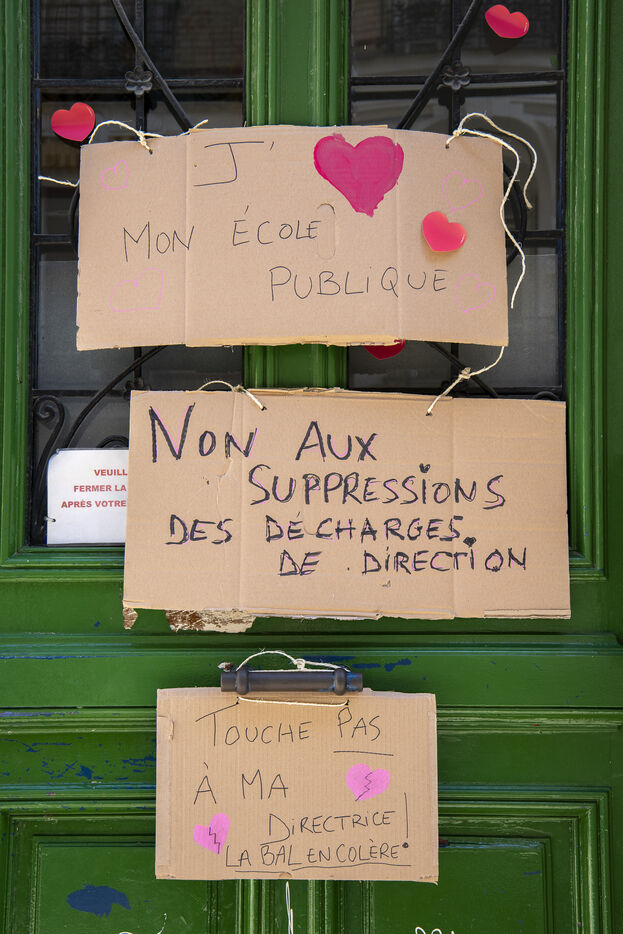 J'
MON ÉCOLE
PUBLIQUE
NON AUX
SUPPRESSIONS
DES DÉCHARGES
DE DIRECTION
VEUILL
FERMER LA
APRÈS VOTRE
TOUCHE PAS
À MA
DIRECTRICE!
LA BAL EN COLÈRE!